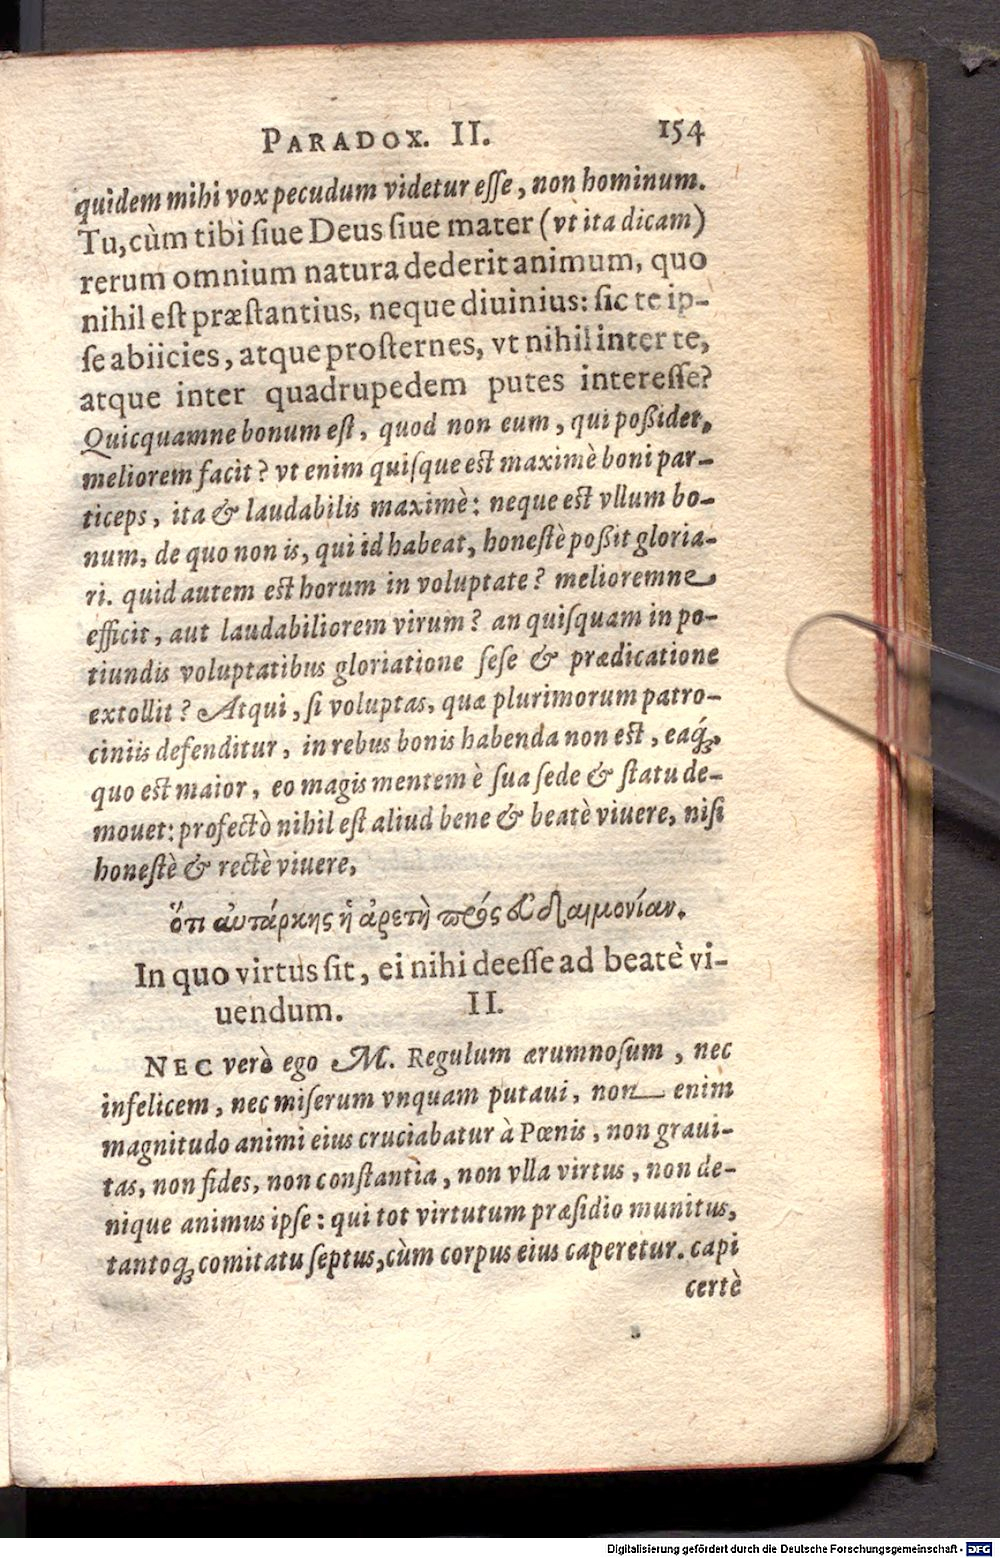 PARADOX. II. 154
quidem mihi vox pecudum videtur eſſe, non hominum.
Tu, cùm tibi ſiue Deus ſiue mater (vt ita dicam)
rerum omnium natura dederit animum, quo
nihil eſt præſtantius, neque diuinius: ſic te ip-
ſe abiicies, atque proſternes, vt nihil inter te,
atque inter quadrupedem putes intereſſe?
Quicquamne bonum eſt, quod non eum, qui poßidet,
meliorem facit? vt enim quiſque eſt maximè boni par-
ticeps, ita & laudabilis maximè: neque eſt vllum bo-
num, de quo non is, qui id habeat, honeſtè poßit gloria-
ri. quid autem eſt horum in voluptate? melioremne
efficit, aut laudabiliorem virum? an quiſquam in po-
tiundis voluptatibus gloriatione ſeſe & prædicatione
extollit? Atqui, ſi voluptas, quæ plurimorum patro-
ciniis defenditur, in rebus bonis habenda non eſt, eaq́;,
quo eſt maior, eo magis mentem è ſua ſede & ſtatu de-
mouet: profectò nihil eſt aliud bene & beatè viuere, niſi
honeſtè & rectè viuere,
ὅτι αὐτάρκης ἡ ἀρετὴ πρός εὐδαιμονίαν.
In quo virtus ſit, ei nihi deeſſe ad beatè vi-
uendum. II.
NEC verò ego M. Regulum ærumnoſum, nec
infelicem, nec miſerum vnquam putaui, non enim
magnitudo animi eius cruciabatur à Pœnis, non graui-
tas, non fides, non conſtantia, non vlla virtus, non de-
nique animus ipſe: qui tot virtutum præſidio munitus,
tantoq; comitatu ſeptus, cùm corpus eius caperetur. capi
certè
Digitalisierung gefördert durch die Deutsche Forschungsgemeinschaft - DFG